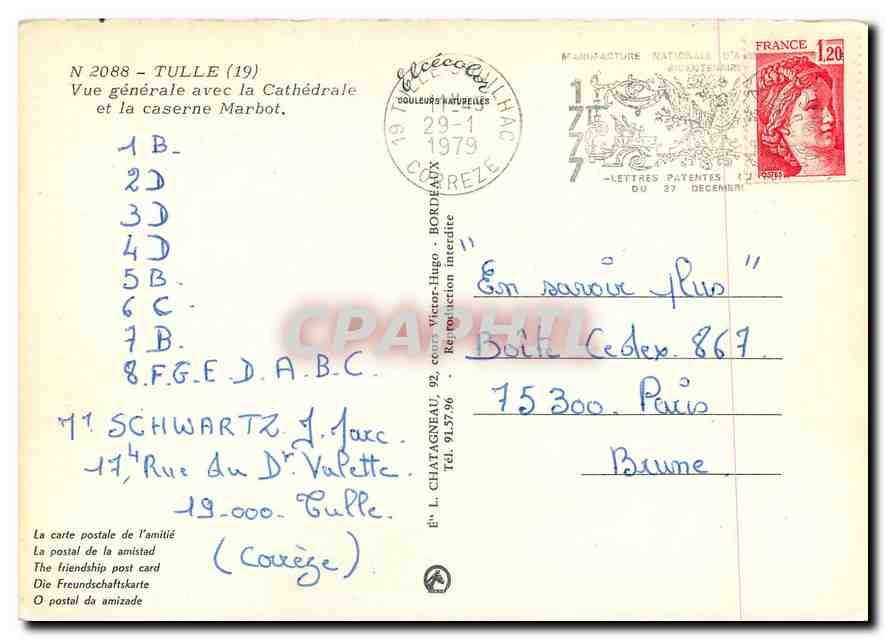 N 2088 - TULLE (19)
Vue générale avec la Cathédrale
et la caserne Marbot.
1 B_
2 D
3 D
4 D
5 B.
6 C
7 B.
8.F.G.E.D.A.B.C.
Mr. SCHWARTZ J. Marc.
17, Rue du Dr Valette.
19-000-Tulle.
(Corrèze)
La carte postale de l'amitié
La postal de la amistad
The friendship post card
Die Freundschaftskarte
O postal da amizade
Elcécolor
COULEURS NATURELLES
19 TULLE
11-45
29-1
1979
CORREZE
Éts L. CHATAGNEAU, 92, cours Victor-Hugo - BORDEAUX
Tél. 91.57.96 - Reproduction interdite
MANUFACTURE NATIONALE
BICENTENAIRE
1777
LETTRES PATENTES
DU 27 DECEMBRE
FRANCE 1,20
POSTES
"En savoir plus"
Boîte Cedex. 867.
75300. Paris
Brune.
CPAPHIL